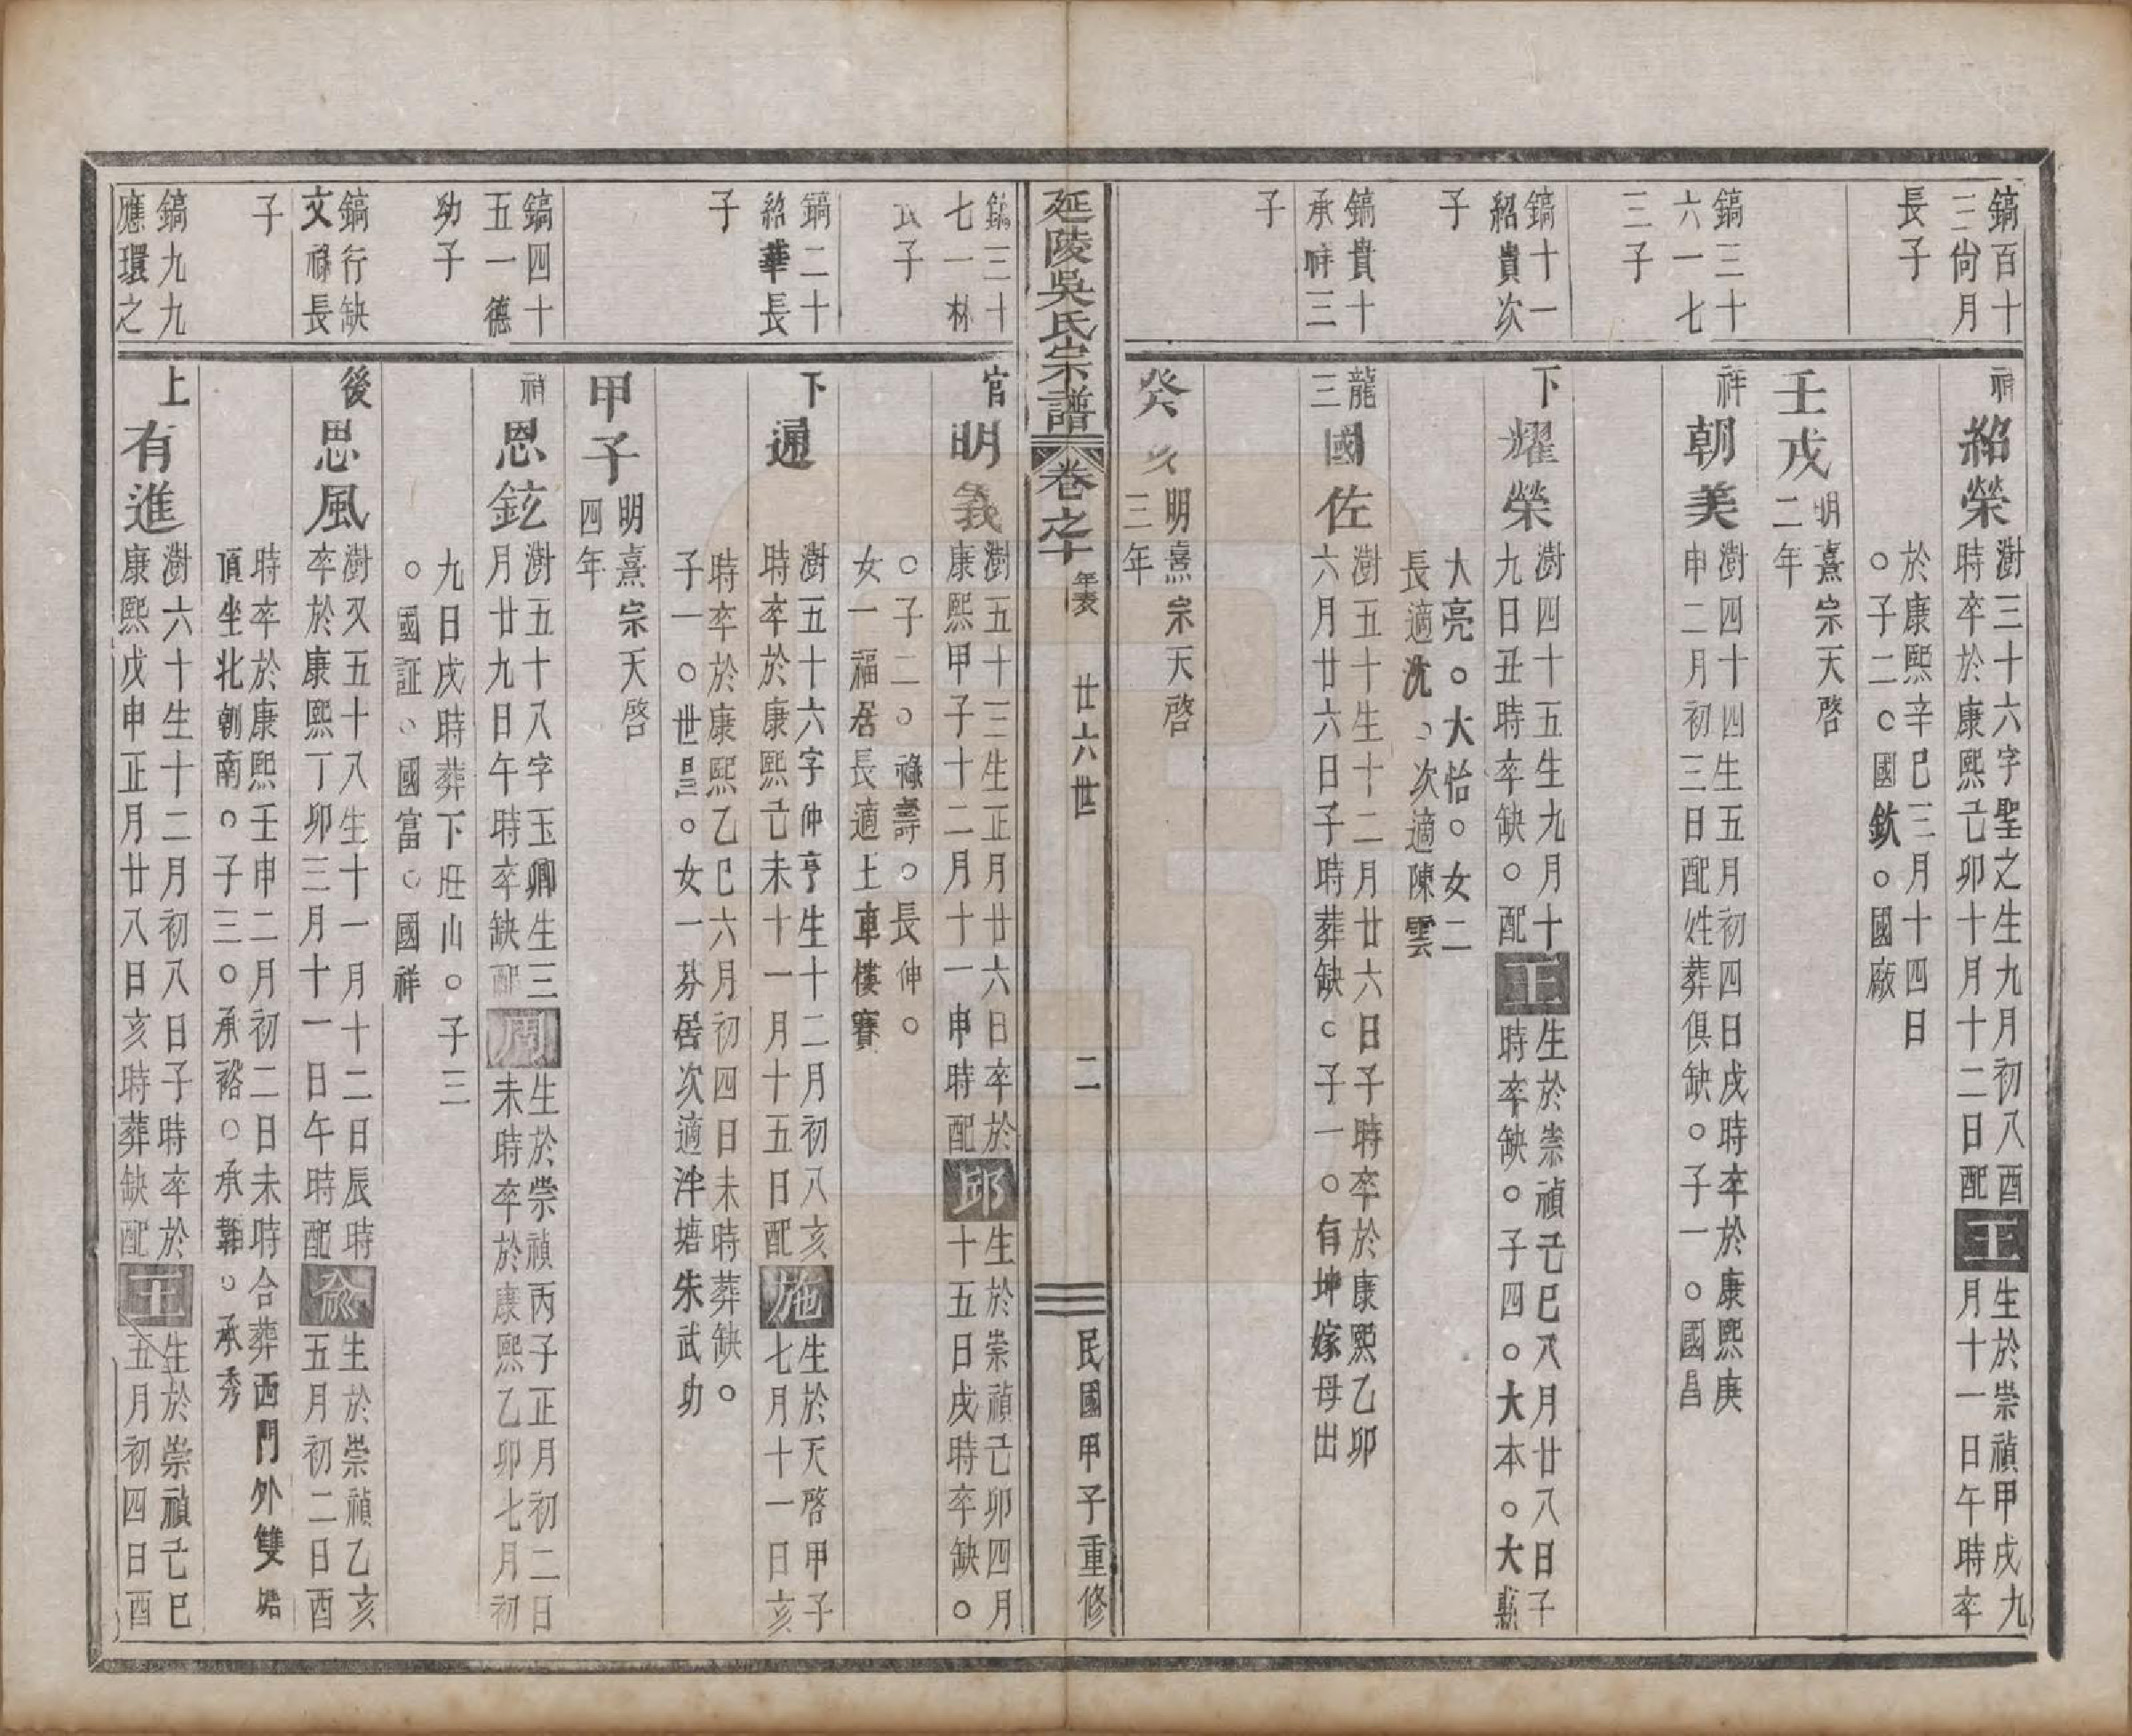 鎬百十
三尙月
長子
祥紹榮
澍三十六字聖之生九月初八酉
時卒於康熙己卯十月十二日配
王
生於崇禎甲戌九
月十一日午時卒
於康熙辛巳三月十四日
○子二○國欽○國廠
壬戌
明熹宗天啓
二年
鎬三十
六一七
三子
祥朝美
澍四十四生五月初四日戌時卒於康熙庚
申二月初三日配姓葬俱缺○子一○國昌
鎬十一
紹貴次
子
下耀榮
澍四十五生九月十
九日丑時卒缺○配
王
生於崇禎己巳八月廿八日子
時卒缺○子四○大本○大
大亮○大怡○女二
長適沈○次適陳雲
鎬貴十
承祥三
子
龍三國佐
澍五十生十二月廿六日子時卒於康熙乙卯
六月廿六日子時葬缺○子一○有坤嫁母出
癸亥
明熹宗天啓
三年
延陵吳氏宗譜
卷之十
年表
廿六世
二
民國甲子重修
鎬三十
七一林
長子
官明義
澍五十三生正月廿六日卒於
康熙甲子十二月十一申時配
邱
生於崇禎己卯四月
十五日戌時卒缺○
○子二○祿壽○長伸○
女一福居長適上車樓賽
鎬二十
紹華長
子
下通
澍五十六字仲亨生十二月初八亥
時卒於康熙己未十一月十五日配
施
生於天啓甲子
七月十一日亥
時卒於康熙乙巳六月初四日未時葬缺○
子一○世昌○女一芬居次適泮塘朱武功
甲子
明熹宗天啓
四年
鎬四十
五一德
功子
祥恩鉉
澍五十八字玉卿生三
月廿九日午時卒缺配
周
生於崇禎丙子正月初二日
未時卒於康熙乙卯七月初
九日戌時葬下旺山○子三
○國証○國富○國祥
鎬行缺
文祿長
子
後思風
澍又五十八生十一月十二日辰時
卒於康熙丁卯三月十一日午時配
俞
生於崇禎乙亥
五月初二日酉
時卒於康熙壬申二月初二日未時合葬西門外雙塘
頂坐北朝南○子三○承裕○承翰○承秀
鎬九九
應環之
上有進
澍六十生十二月初八日子時卒於
康熙戊申正月廿八日亥時葬缺配
王
生於崇禎己巳
五月初四日酉